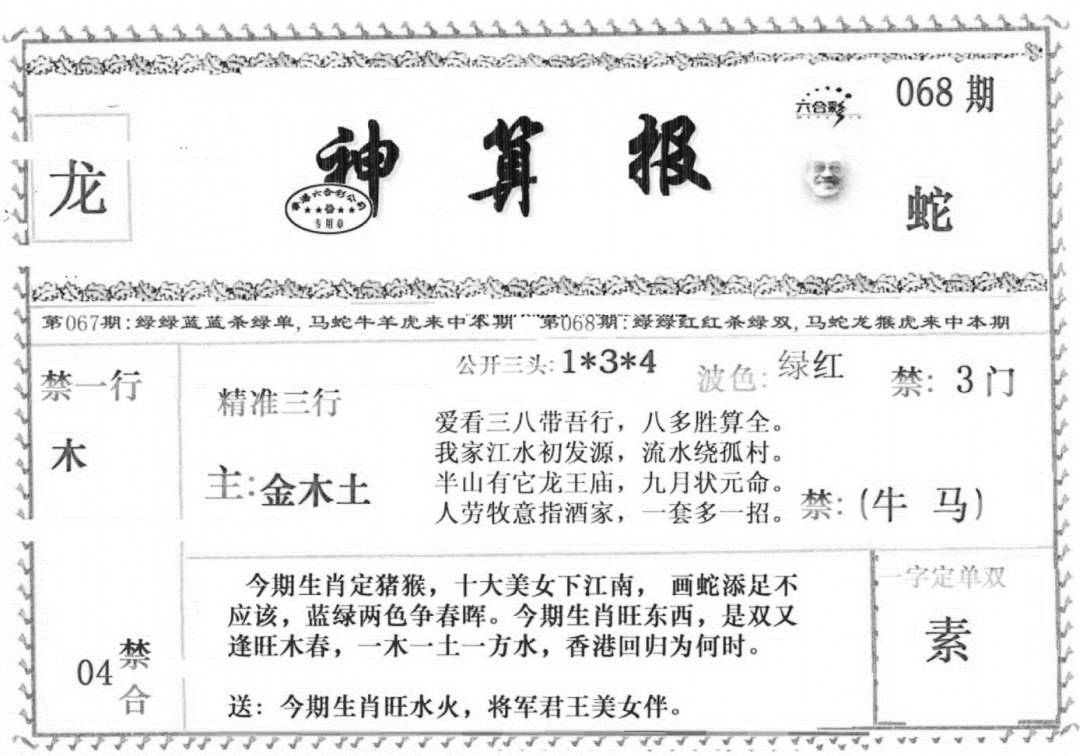 068期
六合彩
龙
神算报
香港六合彩公司
专用章
蛇
第067期:绿绿蓝蓝杀绿单,马蛇牛羊虎来中本期 第068期:绿绿红红杀绿双,马蛇龙猴虎来中本期
禁一行
木
精准三行
主:金木土
公开三头:1*3*4
波色:绿红
禁:3门
爱看三八带吾行，八多胜算全。
我家江水初发源，流水绕孤村。
半山有它龙王庙，九月状元命。
人劳牧意指酒家，一套多一招。
禁:(牛 马)
04禁合
今期生肖定猪猴，十大美女下江南， 画蛇添足不
应该，蓝绿两色争春晖。今期生肖旺东西，是双又
逢旺木春，一木一土一方水，香港回归为何时。
送：今期生肖旺水火，将军君王美女伴。
一字定单双
素